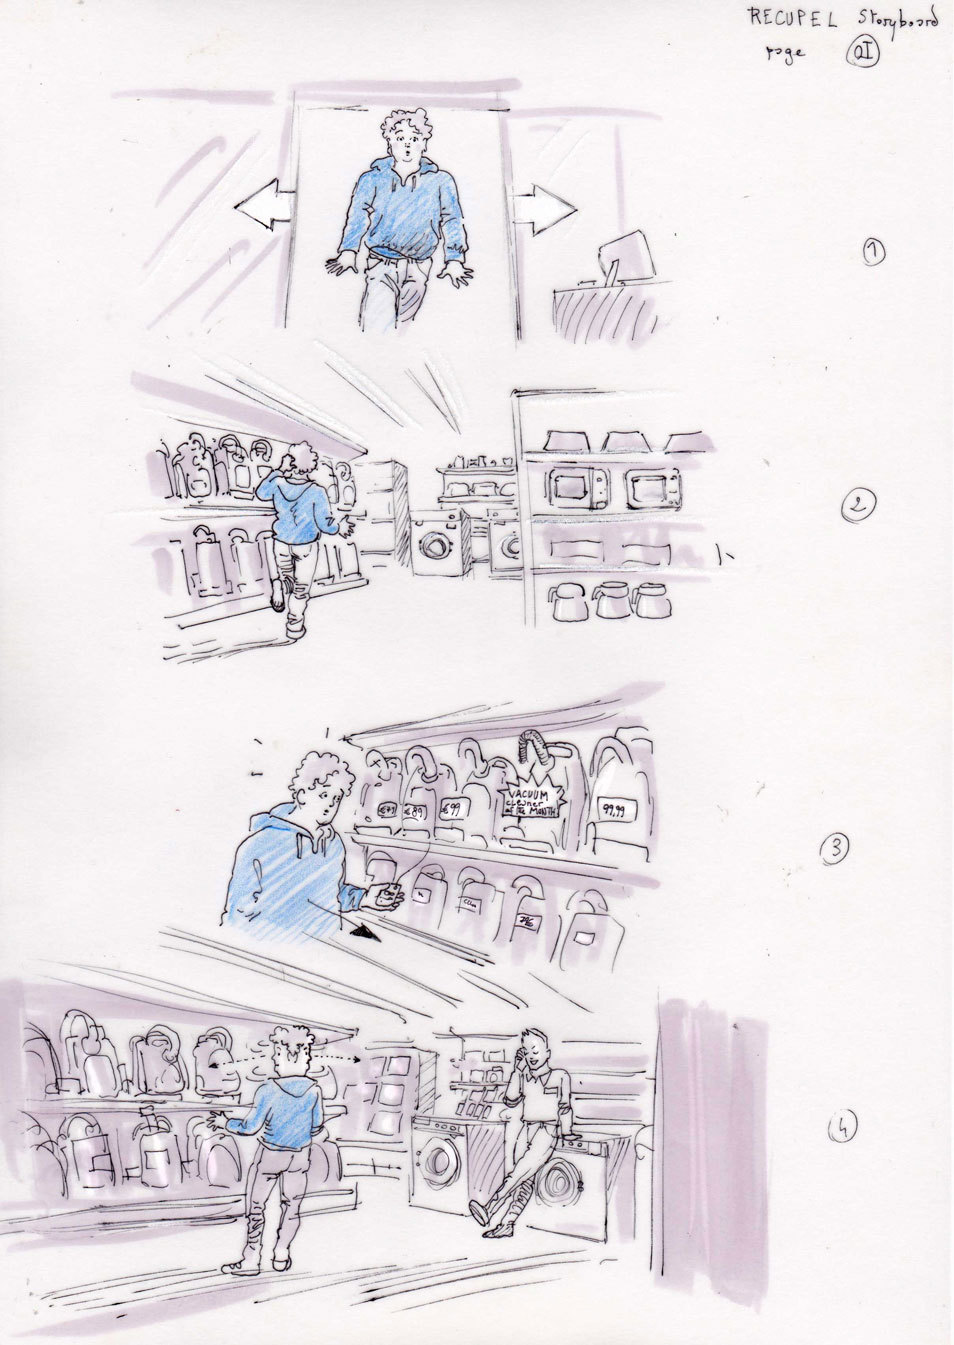 RECUPEL Storyboard
page 01
1
2
€89
€99
VACUUM
cleaner
of the MONTH
99,99
3
4